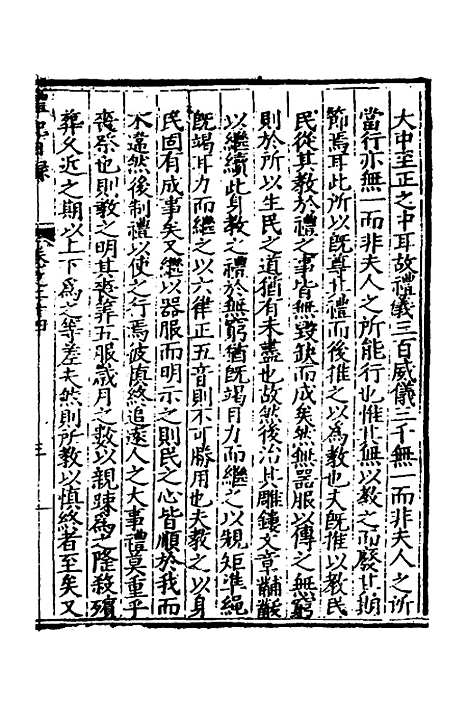 大中至正之中耳故禮儀三百威儀三千無一而非夫人之所
當行亦無一而非夫人之所能行也惟其無以教之而廢其期
節焉耳此所以旣尊其禮而後推之以為教也夫旣推以教民
民從其教於禮之事皆無毀缺而成矣然無器服以傳之無窮
則於所以生民之道猶有未盡也故然後治其雕鏤文章黼黻
以繼續此身教之禮於無窮猶旣竭目力而繼之以規矩準繩
旣竭耳力而繼之以六律正五音則不可勝用也夫教之以身
民固有成事矣又繼以器服而明示之則民之心皆順於我而
不違然後制禮以使之行焉彼慎終追遠人之大事禮莫重乎
喪祭也則教之明其喪葬五服歲月之數以親疎為之隆殺殯
葬久近之期以上下為之等差夫然則所教以慎終者至矣又